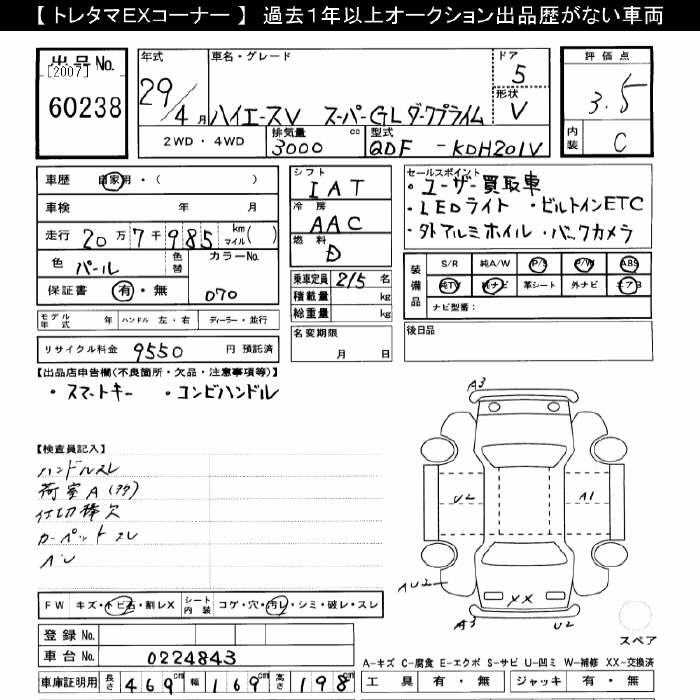 【 トレタマEXコーナー 】 過去１年以上オークション出品歴がない車両
出品No.
[2007]
60238
年式
29/4 月
車名・グレード
ハイエースV スーパーGL ダークプライム
ドア
5
形状
V
2WD・4WD
排気量 cc
3000
型式
QDF - KDH201V
評価点
3.5
内装
C
車歴 自家用・( )
車検 年 月
走行 20万7千985 km マイル( )
色 パール
色替
カラーNo.
070
保証書 有・無
モデル年式 年 ハンドル 左・右 ディーラー・並行
リサイクル料金 9550 円 預託済
シフト
IAT
冷房
AAC
燃料
D
乗車定員 2/5 名
積載量 kg
総重量 kg
名変期限
月 日
セールスポイント
・ユーザー買取車
・LEDライト ・ビルトインETC
・外アルミホイル ・バックカメラ
装備品
S/R 純A/W P/S P/W ABS
純TV 純ナビ 革シート 外ナビ エアB
ナビ型番：
後日品
【出品店申告欄(不良箇所・欠品・注意事項等)】
・スマートキー ・コンビハンドル
【検査員記入】
ハンドルスレ
荷室A
カーペットスレ
A3
U2
A1
XX
A3
U2
スペア
FW キズ・トビ石・割レX
シート内装 コゲ・穴・汚レ・シミ・破レ・スレ
登録No.
車台No. 0224843
車庫証明用 長さ 469cm 幅 169cm 高さ 198cm
A-キズ C-腐食 E-エクボ S-サビ U-凹ミ W-補修 XX-交換済
工具 有・無 ジャッキ 有・無